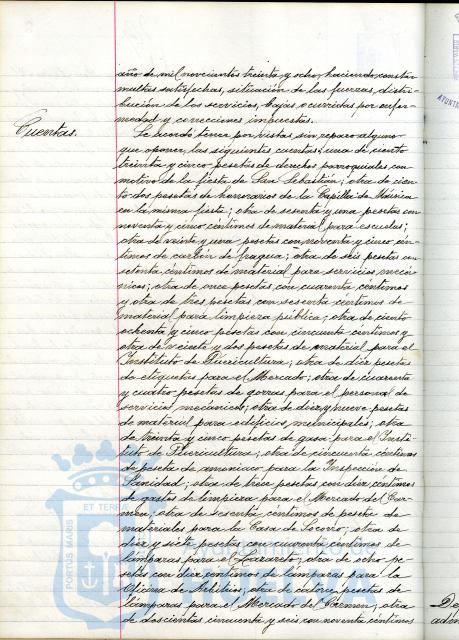 año de mil novecientos treinta y ocho, haciendo constar
multas satisfechas, situación de las fuerzas, distri-
bución de los servicios, bajas ocurridas por enfer-
medad y correcciones impuestas.
Cuentas.
Se acordó tener por vistas sin reparo alguno
que oponer, las siguientes cuentas; una de ciento
treinta y cinco pesetas de derechos parroquiales con
motivo de la fiesta de San Sebastián; otra de cien-
to dos pesetas de honorarios de la Capilla de Música
en la misma fiesta; otra de sesenta y una pesetas con
noventa y cinco céntimos de material para escuelas;
otra de veinte y una pesetas con noventa y cinco cén-
timos de carbón de fragua; otra de seis pesetas con
setenta céntimos de material para servicios mecá-
nicos; otra de once pesetas con cuarenta céntimos
y otra de tres pesetas con sesenta céntimos de
material para limpieza pública; otra de ciento
ochenta y cinco pesetas con cincuenta céntimos y
otra de veinte y dos pesetas de material para el
Instituto de Puericultura; otra de diez pesetas
de etiquetas para el Mercado; otra de cuarenta
y cuatro pesetas de gorras para el personal de
servicios mecánicos; otra de diez y nueve pesetas
de material para edificios municipales; otra
de treinta y cinco pesetas de gasa para el Insti-
tuto de Puericultura; otra de cincuenta céntimos
de peseta de amoniaco para la Inspección de
Sanidad; otra de trece pesetas con diez céntimos
de gastos de limpieza para el Mercado del Car-
men; otra de sesenta céntimos de peseta de
materiales para la Casa de Socorro; otra de
diez y siete pesetas con cuarenta céntimos de
lámparas para el Lazareto; otra de ocho pe-
setas con diez céntimos de lámparas para la
Oficina de Arbitrios; otra de catorce pesetas de
lámparas para el Mercado del Carmen; otra
de doscientas cincuenta y seis con noventa céntimos
ET TERRÆ
PORTUS MARIS
Ayuntamiento de
AYUNT
De
adm